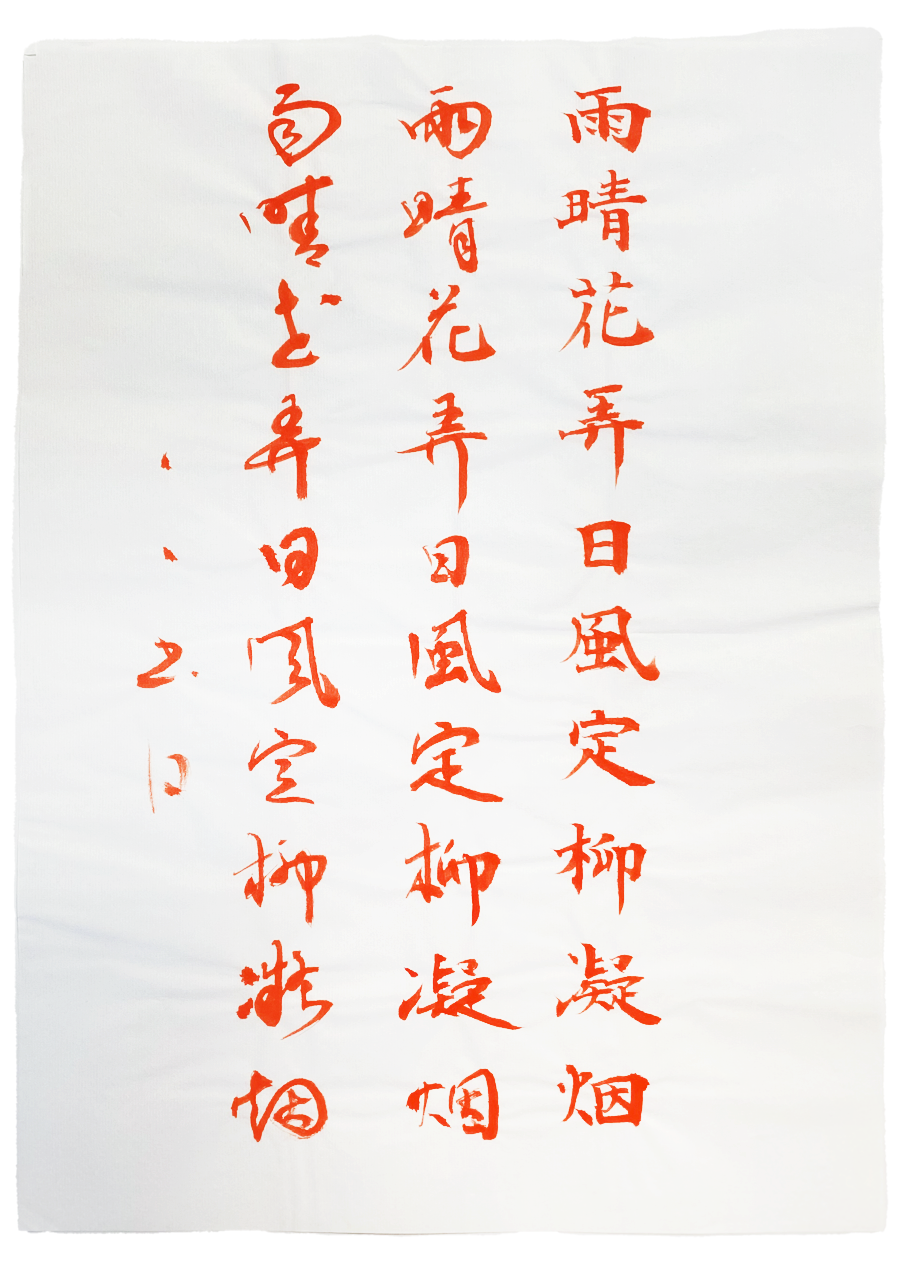 雨晴花弄日風定柳凝烟
雨晴花弄日風定柳凝烟
雨晴花弄日風定柳凝烟